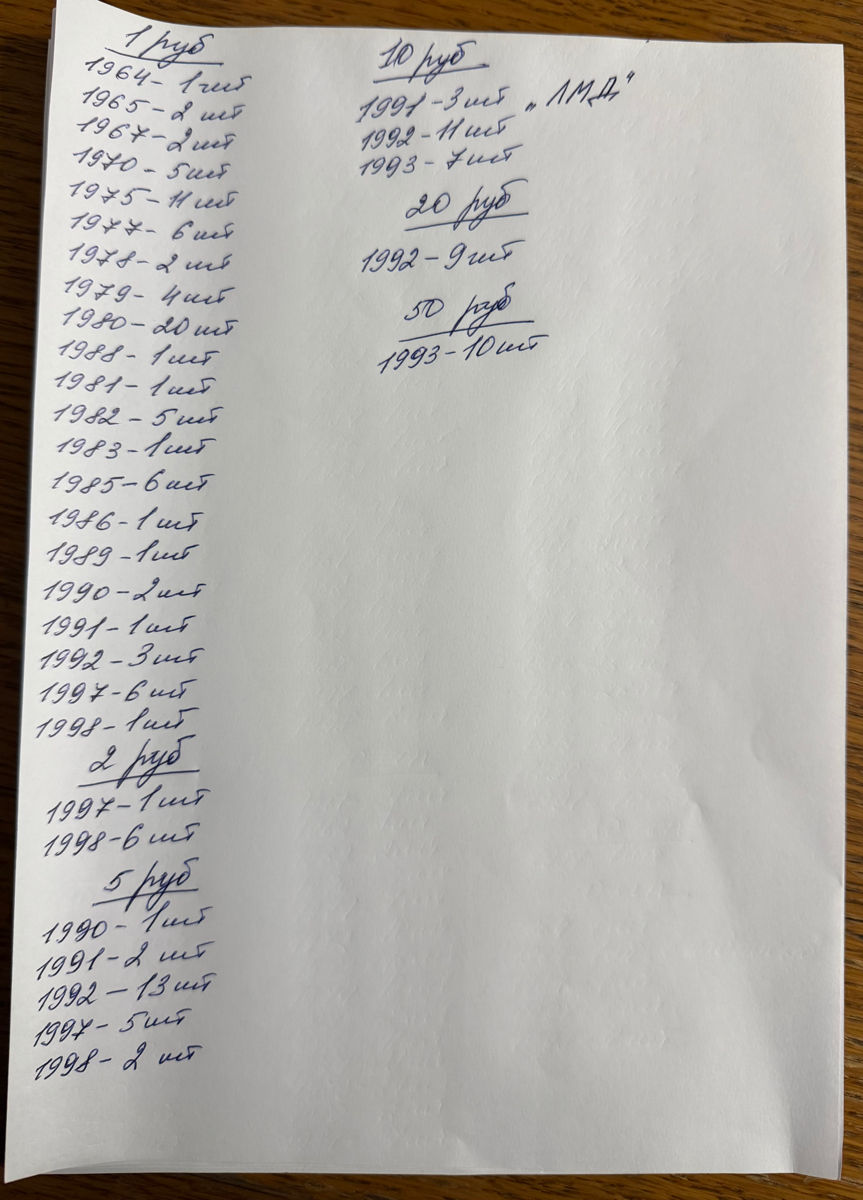 1 руб
1964- 1 шт
1965- 2 шт
1967- 2 шт
1970 - 5 шт
1975 - 11 шт
1977- 6 шт
1978- 2 шт
1979- 4 шт
1980- 20 шт
1988- 1 шт
1981- 1 шт
1982 - 5 шт
1983-1 шт
1985-6 шт
1986-1 шт
1989-1 шт
1990-2 шт
1991-1 шт
1992-3 шт
1997-6 шт
1998-1 шт
2 руб
1997-1 шт
1998-6 шт
5 руб
1990- 1 шт
1991-2 шт
1992-13 шт
1997- 5 шт
1998- 2 шт
10 руб
1991-3 шт „ЛМД"
1992-11 шт
1993-7 шт
20 руб
1992-9 шт
50 руб
1993-10 шт